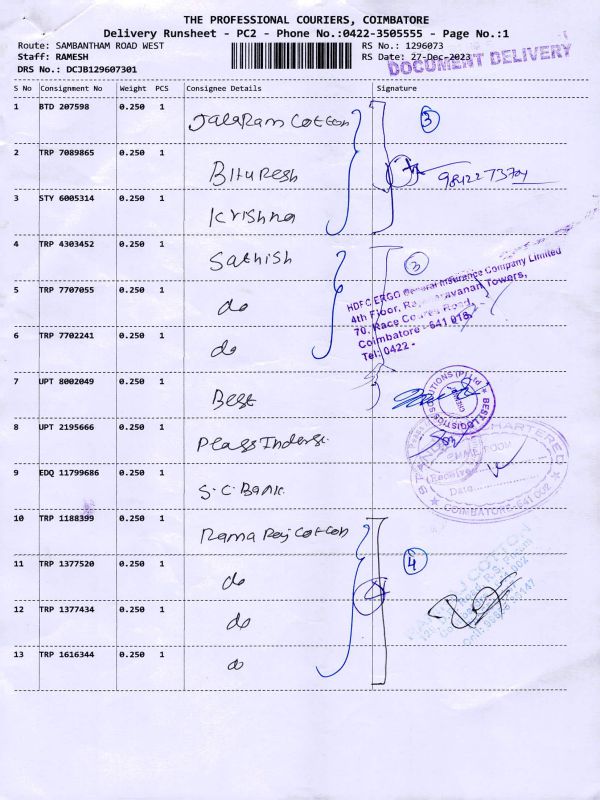 THE PROFESSIONAL COURIERS, COIMBATORE
Delivery Runsheet - PC2 - Phone No.:0422-3505555 - Page No.:1
Route: SAMBANTHAM ROAD WEST RS No.: 1296073
Staff: RAMESH RS Date: 27-Dec-2023
DRS No.: DCJB129607301 DOCUMENT DELIVERY
S No Consignment No Weight PCS Consignee Details Signature
1 BTD 207598 0.250 1 Jalaram Cotton 3
2 TRP 7089865 0.250 1 Bituresh
3 STY 6005314 0.250 1 Krishna
4 TRP 4303452 0.250 1 Sathish 3
HDFC ERGO General Insurance Company Limited
4th Floor, Towers,
70, Race Course Road,
Coimbatore - 641 018.
Tel: 0422 -
5 TRP 7707055 0.250 1 do
6 TRP 7702241 0.250 1 do
7 UPT 8002049 0.250 1 Best
BEST LOGISTICS SOLUTIONS (P) Ltd
8 UPT 2195666 0.250 1
STANDARD CHARTERED
Received
Date
COIMBATORE-641002
9 EDQ 11799686 0.250 1 S.C. Bank
10 TRP 1188399 0.250 1 Rama Raj Cotton
11 TRP 1377520 0.250 1 do 4
12 TRP 1377434 0.250 1 do
13 TRP 1616344 0.250 1 do